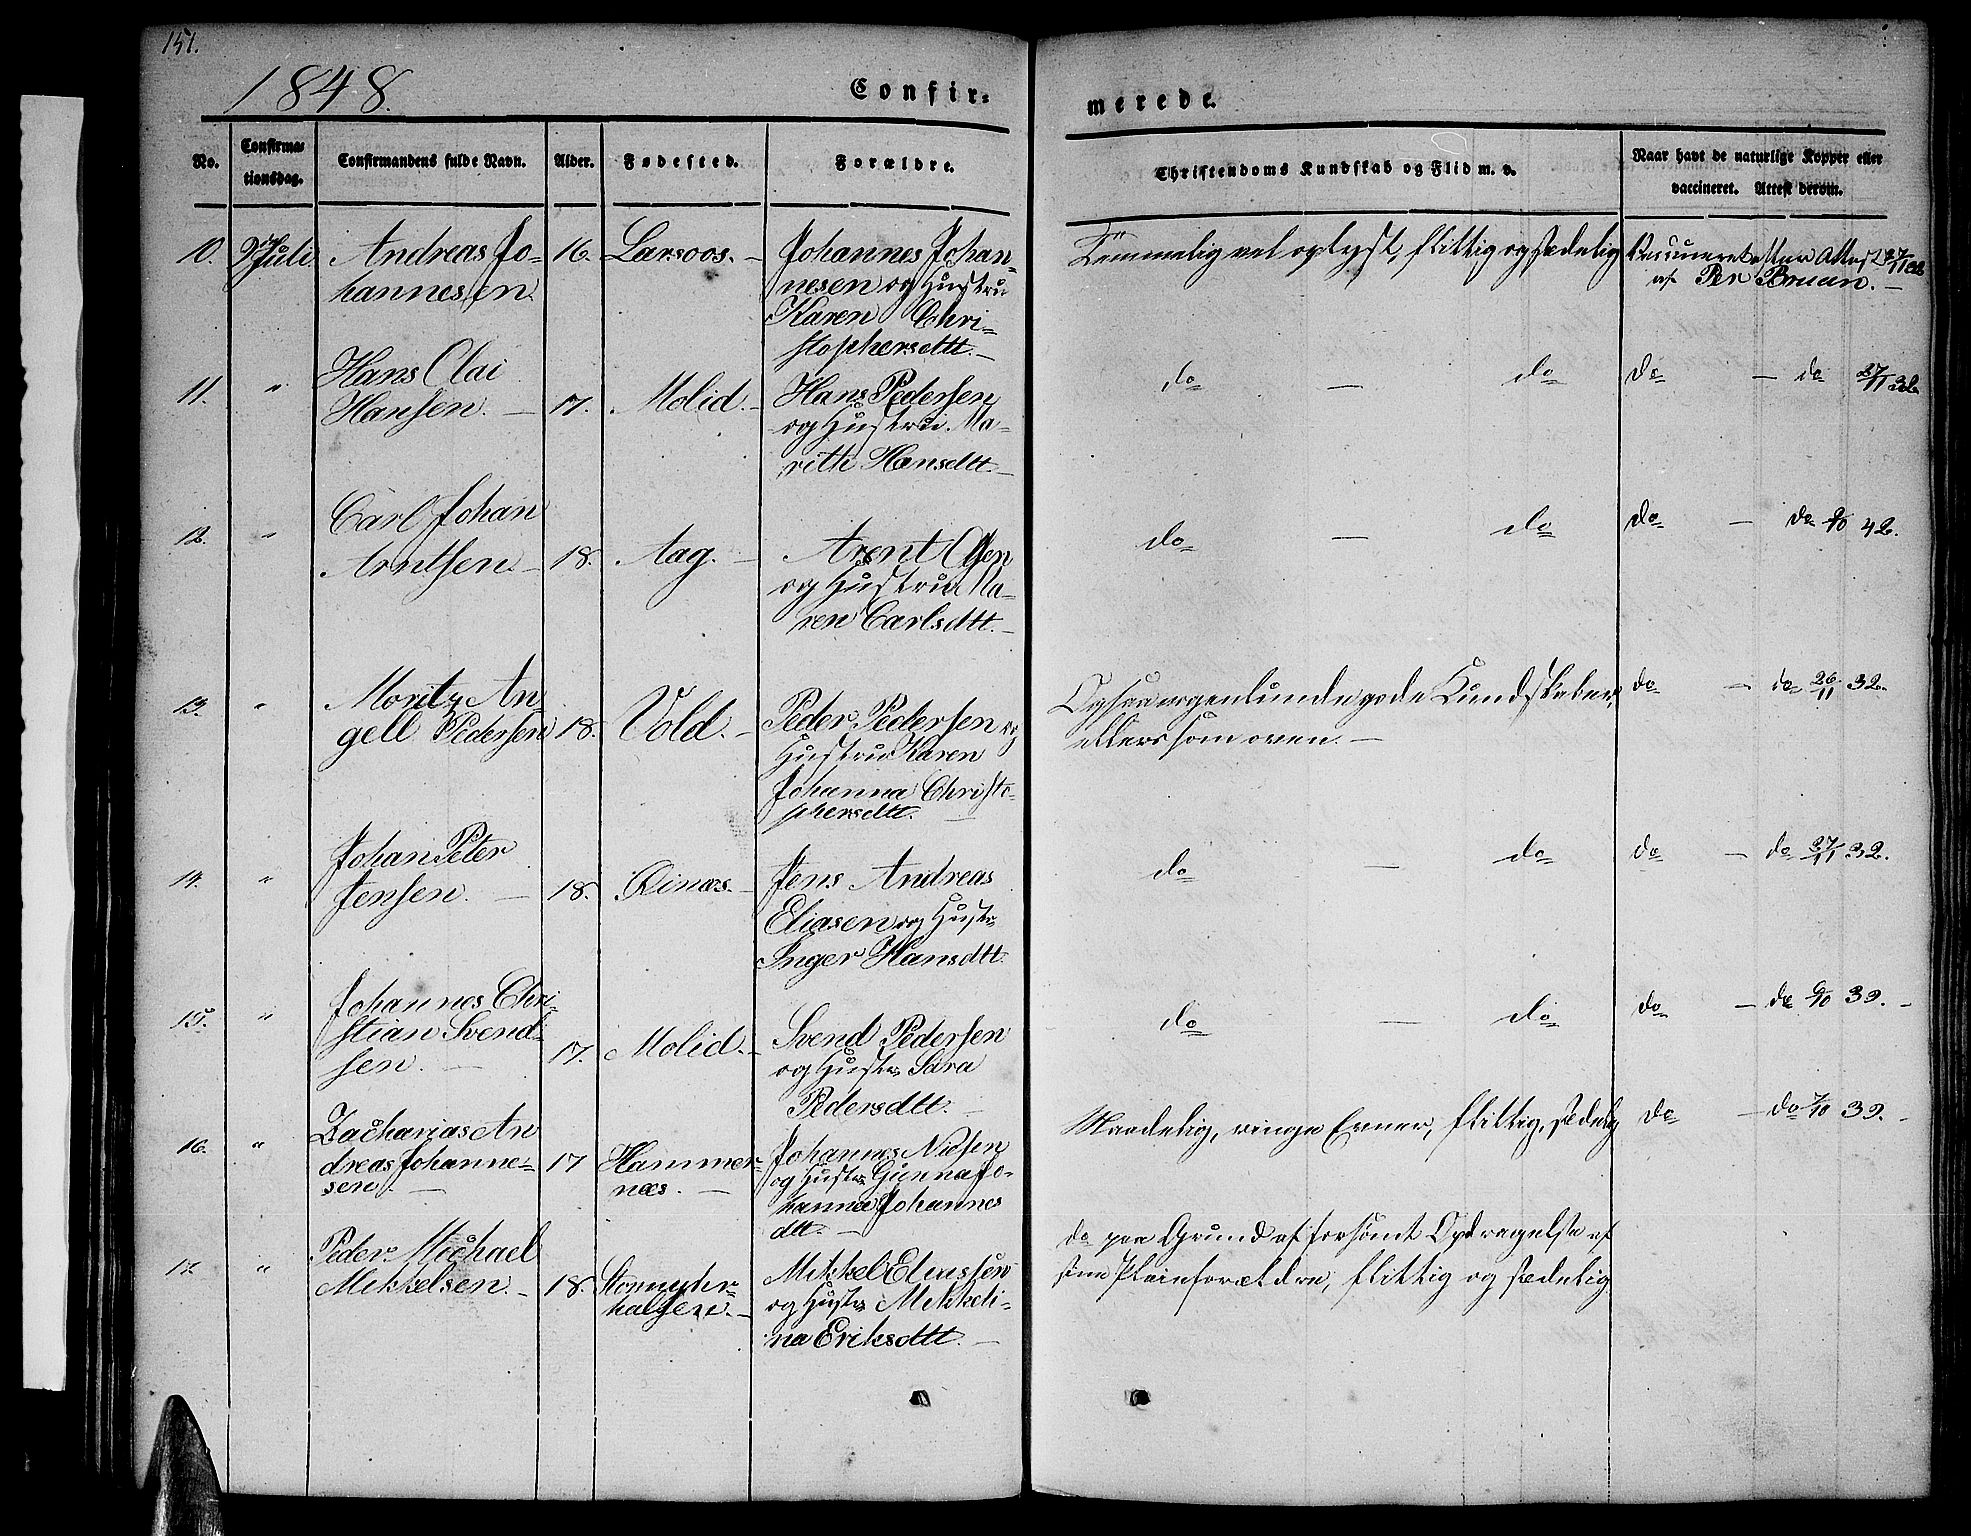 151.
1848.
Confir-
merede.
No.
Confirma-
tionsdag.
Confirmandens fulde Navn.
Alder.
Fødested.
Forældre.
Christendoms Kundskab og Flid m. v.
Naar havt de naturlige Kopper eller
vaccineret. Attest derom.
10. Juli Andreas Jo- 16. Larsoos. – Johannes Johan-
hannesen nesen og Hustru
Karen Chri-
stophersdtt. –
Temmelig vel oplyst, flittig og sædelig
Attest 27/11 32
af Per Bruun. –
11. " Hans Clai
Hansen. – 17. Molid. – Hans Pedersen
og Hustru Ma-
rith Hansdtt. –
do – do do – do 27/11 32
12. " Carl Johan
Arntsen. – 18. Aag. – Arent Olsen
og Hustru Ma-
ren Carlsdtt. –
do – do do – do 9/10 42.
13. " Moritz An-
gell Pedersen 18. Vold. – Peder Pedersen og
Hustru Karen
Johanna Christo-
phersdtt. –
gode Kundskaber,
ellers som oven. –
do – do 26/11 32.
14. " Johan Peter
Jensen. – 18. – Jens Andreas
Eliasen og Hustr
Inger Hansdtt.
do – do do – do 27/11 32.
15. " Johannes Chri-
stian Svend-
sen. – 17. Molid. – Svend Pedersen
og Hustr Sara
Pedersdtt. –
do – do do – do 6/10 39. –
16. " Zacharias An
dreas Johanne- 17 Hammer-
sen. – næs. –
Johannes Nielsen
og Hustr Gunna Jo-
hanna Johannes
dtt. –
Maadelig, ringe Evner, flittig, sædelig
do – do 7/10 39. –
17. " Peder Michael
Mikkelsen. – 18.
Mikkel Eliassen
og Hustr Mikkeli-
na Eriksdtt. –
do paa Grund af forsømt Opdragelse af
sine Pleieforældre, flittig og sædelig